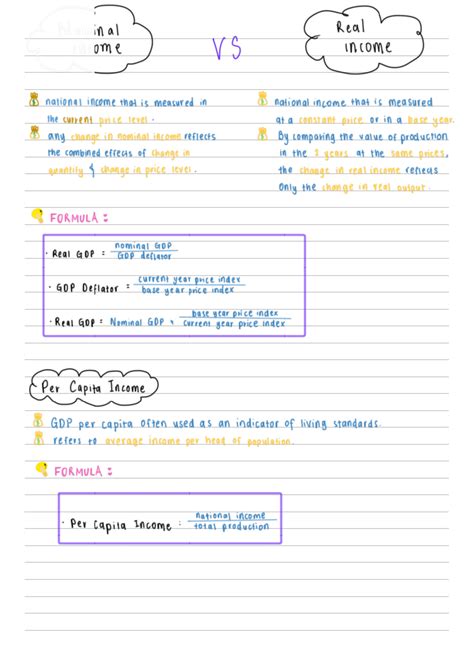 Nominal income
VS
Real income
national income that is measured in
the current price level.
any change in nominal income reflects
the combined effects of change in
quantity & change in price level.
national income that is measured
at a constant price or in a base year.
By comparing the value of production
in the 2 years at the same prices,
the change in real income reflects
only the change in real output.
FORMULA:
· Real GDP = nominal GDP / GDP deflator
· GDP Deflator = current year price index / base year price index
· Real GDP = Nominal GDP x base year price index / current year price index
Per Capita Income
GDP per capita often used as an indicator of living standards.
refers to average income per head of population.
FORMULA:
· Per Capita Income : national income / total production